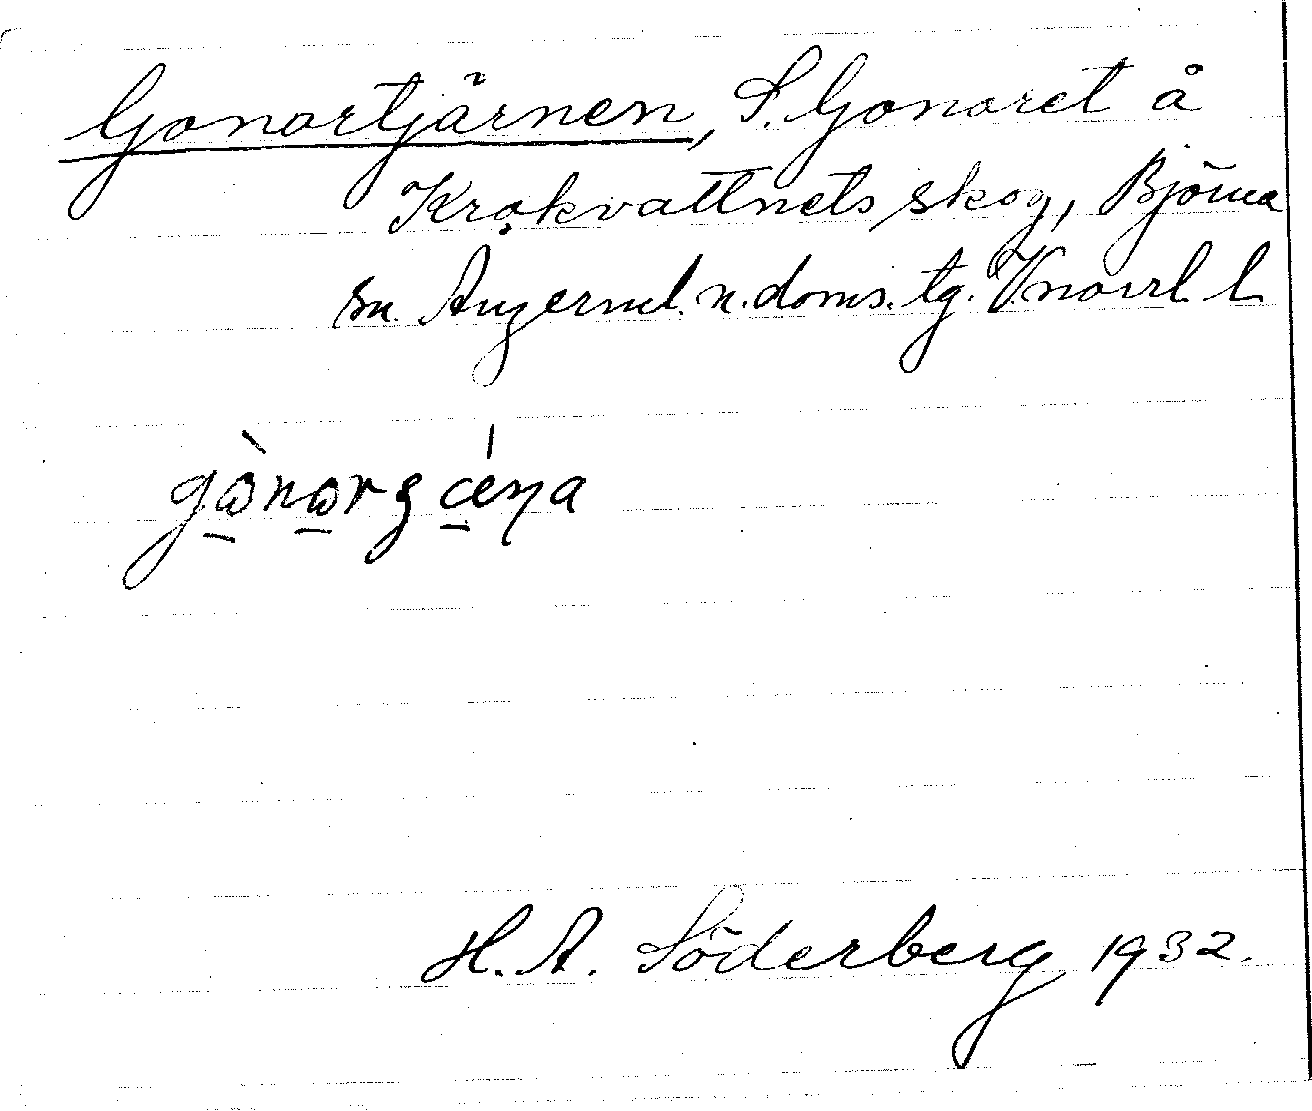 Gonortjärnen, S. Gonoret å
Krokvattnets skog, Björna
sn. Ångerml. n. doms. tg. V.norrl. l.
gònorgćęṇa
H. A. Söderberg 1932.